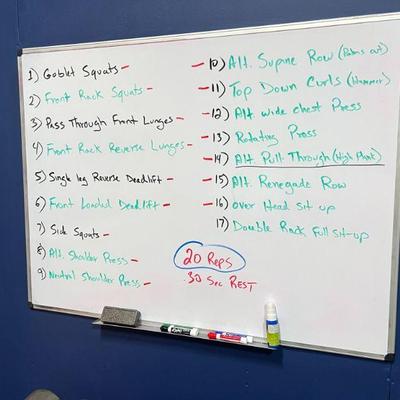 1) Goblet Squats -
2) Front Rack Squats -
3) Pass Through Front Lunges -
4) Front Rack Reverse Lunges -
5) Single leg Reverse Deadlift -
6) Front Loaded Deadlift -
7) Side Squats -
8) Alt. Shoulder Press -
9) Neutral Shoulder Press -
- 10) Alt. Supine Row (Palms out)
- 11) Top Down Curls (Hammer)
- 12) Alt. wide chest Press
- 13) Rotating Press
- 14) Alt. Pull-Through (High Plank)
- 15) Alt. Renegade Row
- 16) over Head sit up
17) Double Rack Full sit-up
20 Reps
.30 Sec REST